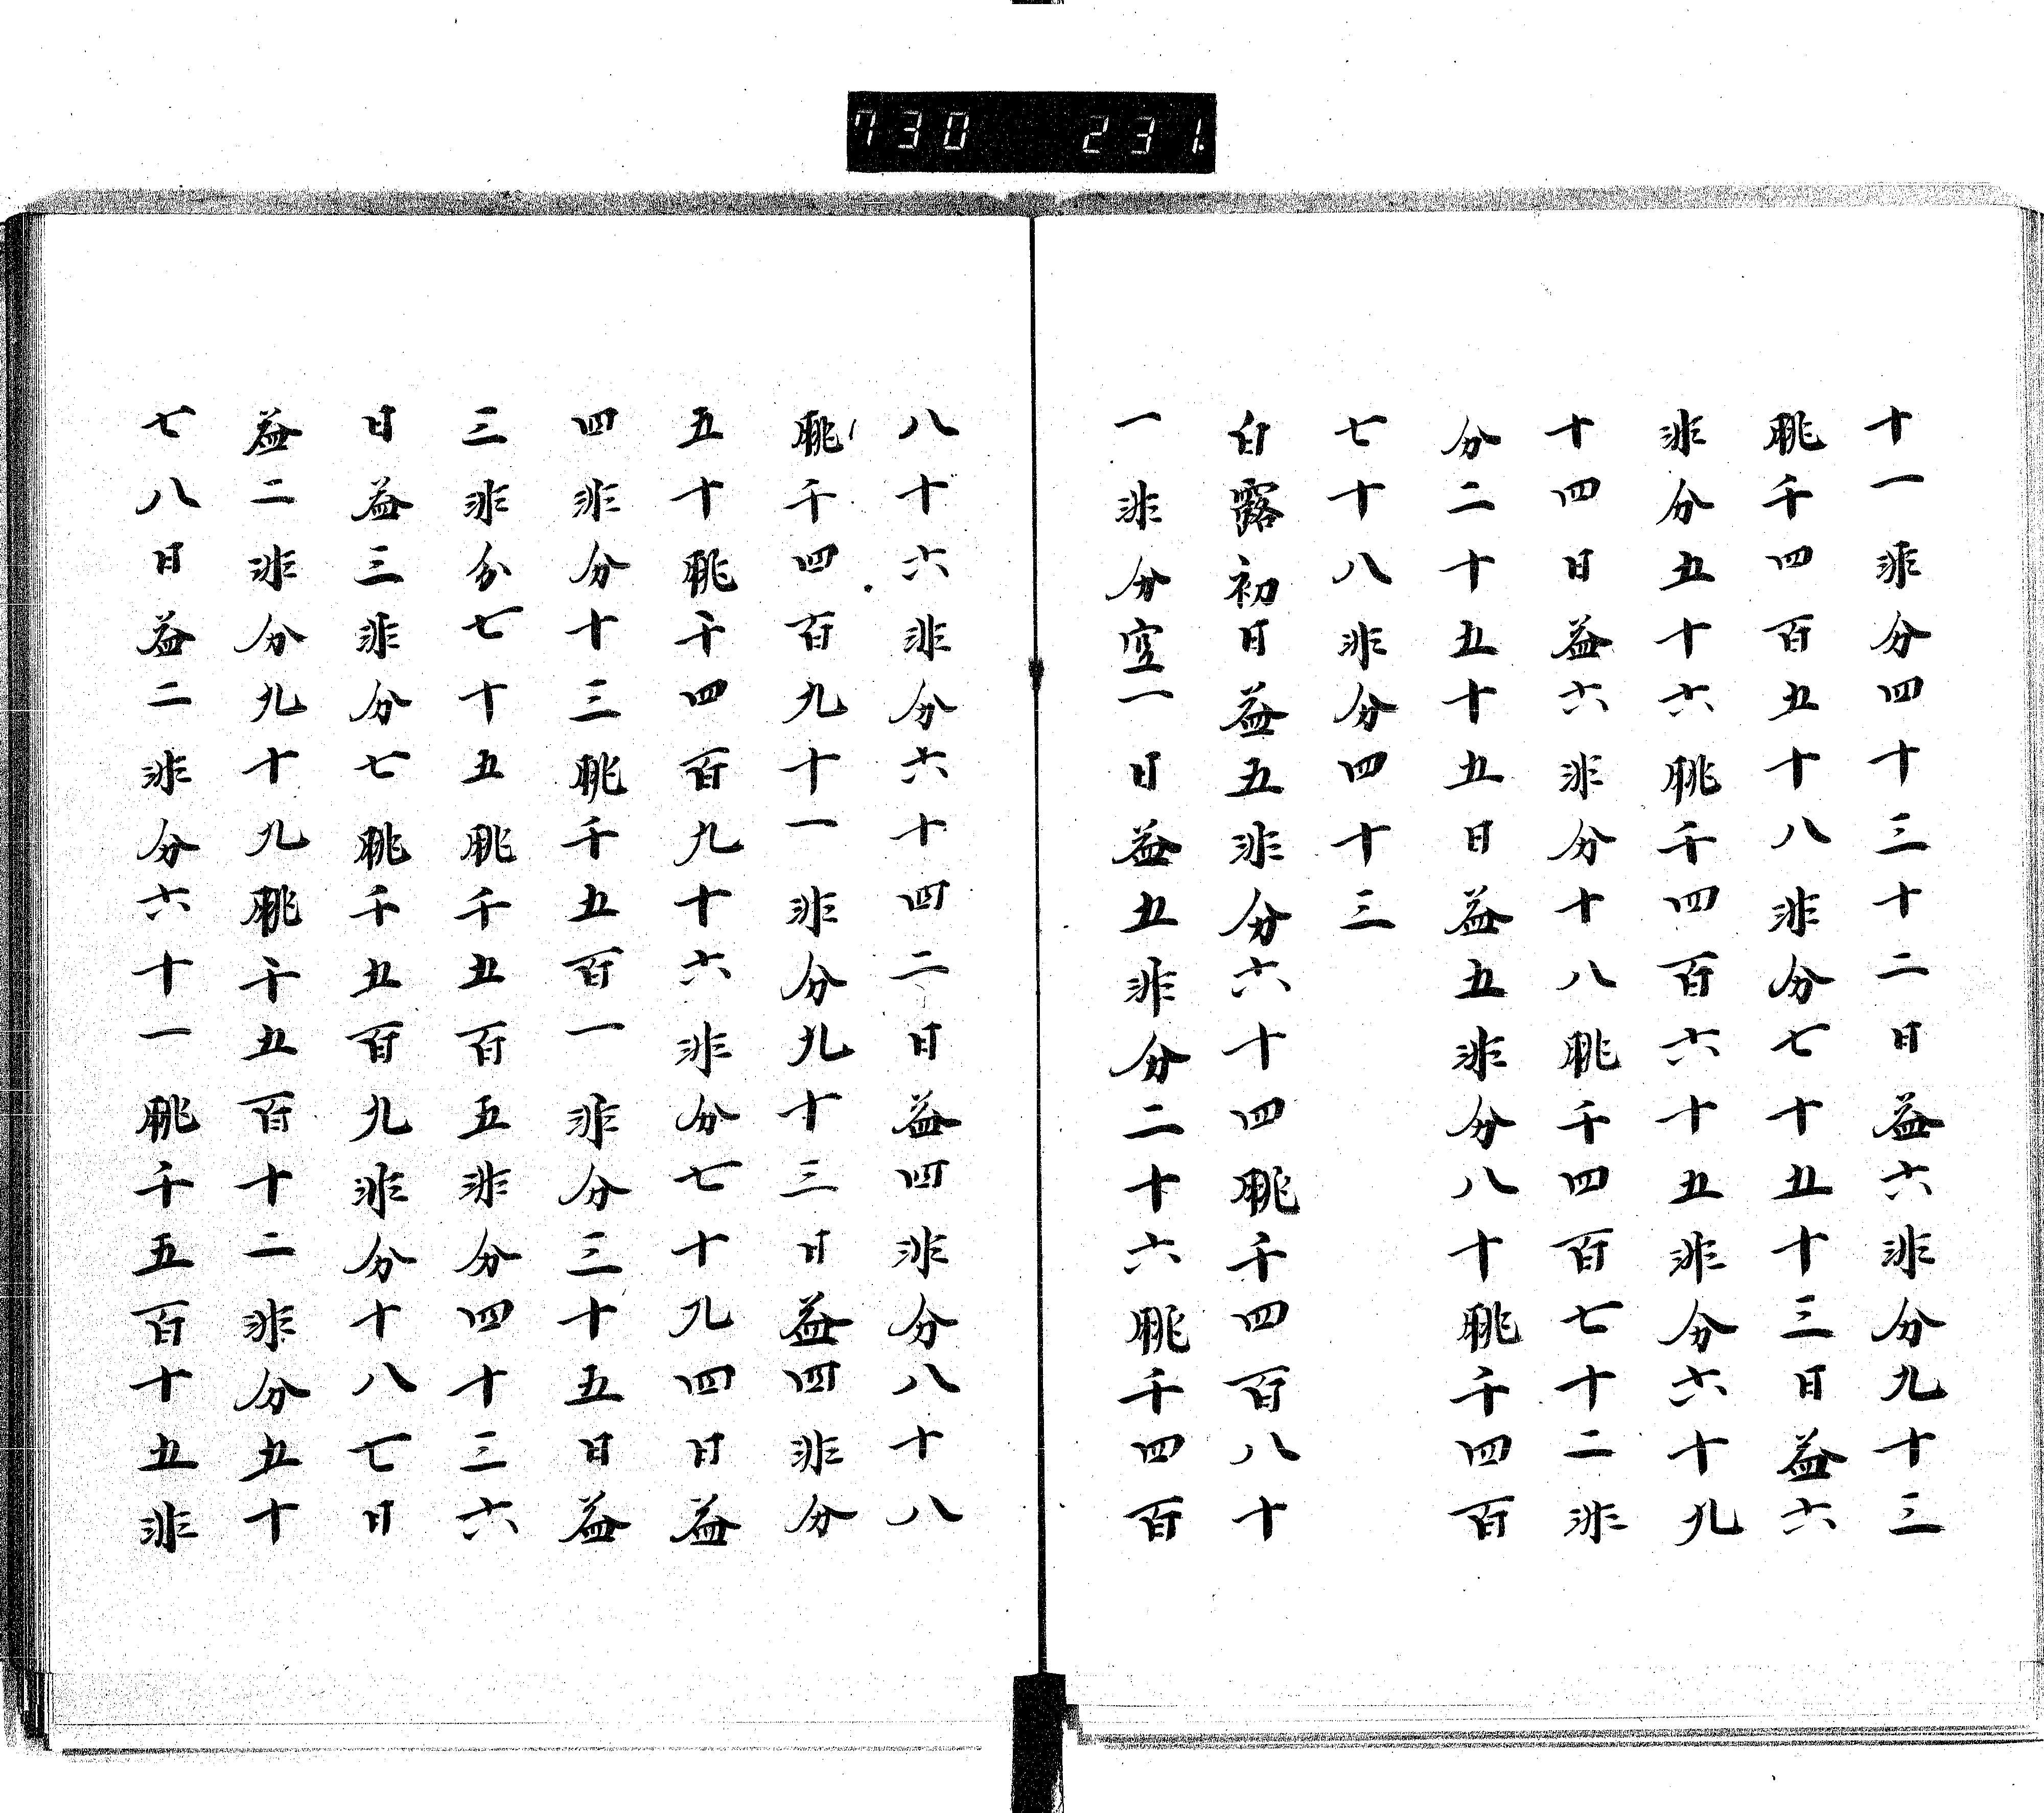 730 231.
十一非分四十三十二日益六非分九十三
朓千四百五十八非分七十五十三日益六
非分五十六朓千四百六十五非分六十九
十四日益六非分十八朓千四百七十二非
分二十五十五日益五非分八十朓千四百
七十八非分四十三
白露初日益五非分六十四朓千四百八十
一非分空一日益五非分二十六朓千四百
八十六非分六十四二日益四非分八十八
朓千四百九十一非分九十三日益四非分
五十朓千四百九十六非分七十九四日益
四非分十三朓千五百一非分三十五日益
三非分七十五朓千五百五非分四十三六
日益三非分七朓千五百九非分十八七日
益二非分九十九朓千五百十二非分五十
七八日益二非分六十一朓千五百十五非